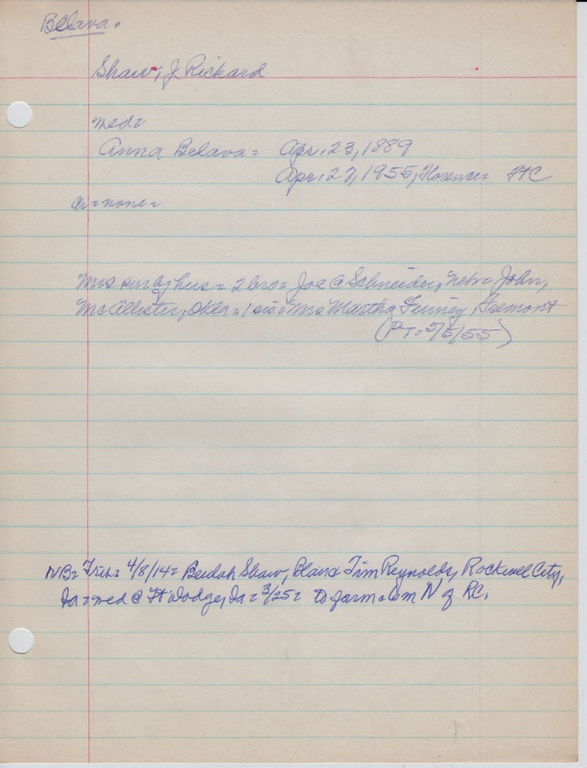 Belava.
Shaw, J Richard
med=
Anna Belava = Apr. 23, 1889
Apr. 27, 1955, Florence = FC
Ch = none =
Mrs sur by hus = 2 bro = Joe @ Schneider, Nebr = John,
McAllister, Okla = 1 sis = Mrs Martha Finney, Fremont
(PT = 5/5/55)
NB = Trib = 4/8/14 = Beulah Shaw, Bland Tim Reynolds, Rockwell City,
Ia = med @ Ft Dodge, Ia = 3/25 = to farm 2 m N of RC.